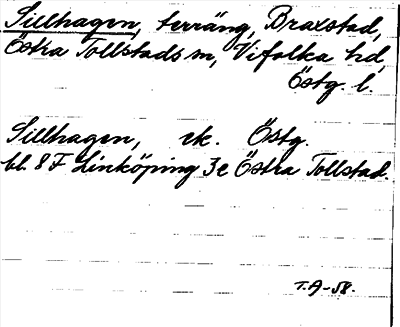 Sillhagen, terräng, Braxstad,
Östra Tollstads sn, Vifolka hd,
Östg. l.
Sillhagen, ek. Östg.
bl. 8 F Linköping 3e Östra Tollstad.
T.A-58.